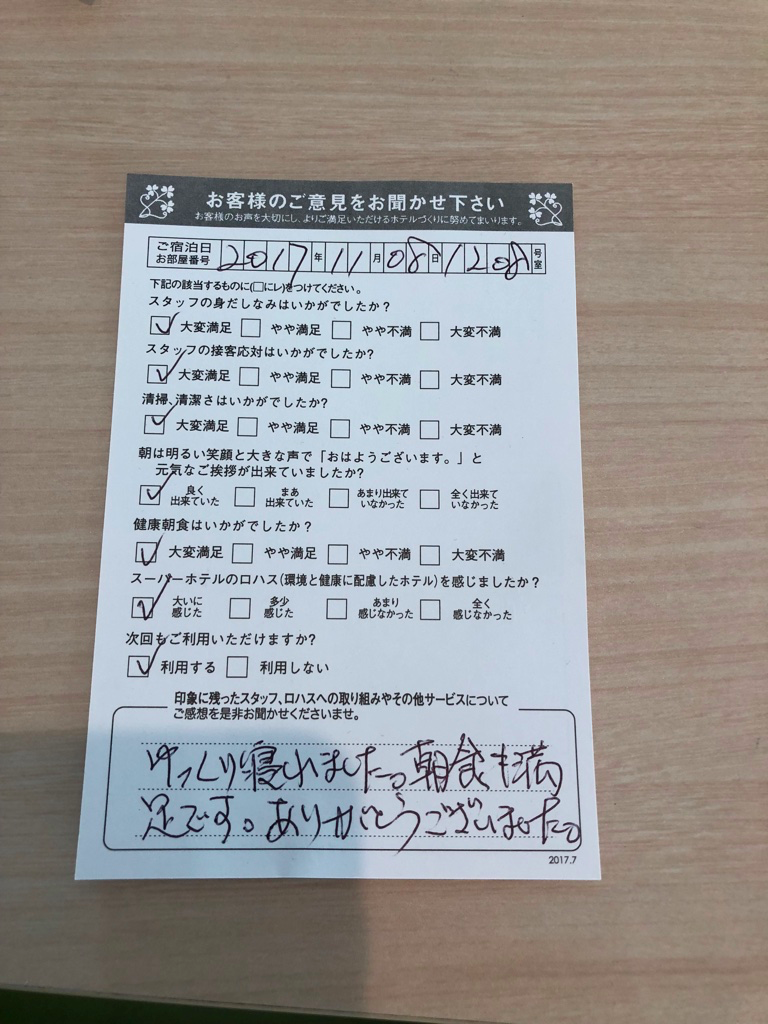 お客様のご意見をお聞かせ下さい
お客様のお声を大切にし、よりご満足いただけるホテルづくりに努めてまいります。
ご宿泊日 2017年11月08日 1208号
お部屋番号 室
下記の該当するものに(□にレ)をつけてください。
スタッフの身だしなみはいかがでしたか?
大変満足 やや満足 やや不満 大変不満
スタッフの接客応対はいかがでしたか?
大変満足 やや満足 やや不満 大変不満
清掃、清潔さはいかがでしたか?
大変満足 やや満足 やや不満 大変不満
朝は明るい笑顔と大きな声で「おはようございます。」と
元気なご挨拶が出来ていましたか?
良く まあ あまり出来て 全く出来て
出来ていた 出来ていた いなかった いなかった
健康朝食はいかがでしたか?
大変満足 やや満足 やや不満 大変不満
スーパーホテルのロハス(環境と健康に配慮したホテル)を感じましたか?
大いに 多少 あまり 全く
感じた 感じた 感じなかった 感じなかった
次回もご利用いただけますか?
利用する 利用しない
印象に残ったスタッフ、ロハスへの取り組みやその他サービスについて
ご感想を是非お聞かせくださいませ。
ゆっくり寝れました。朝食も満
足です。ありがとうございました。
2017.7